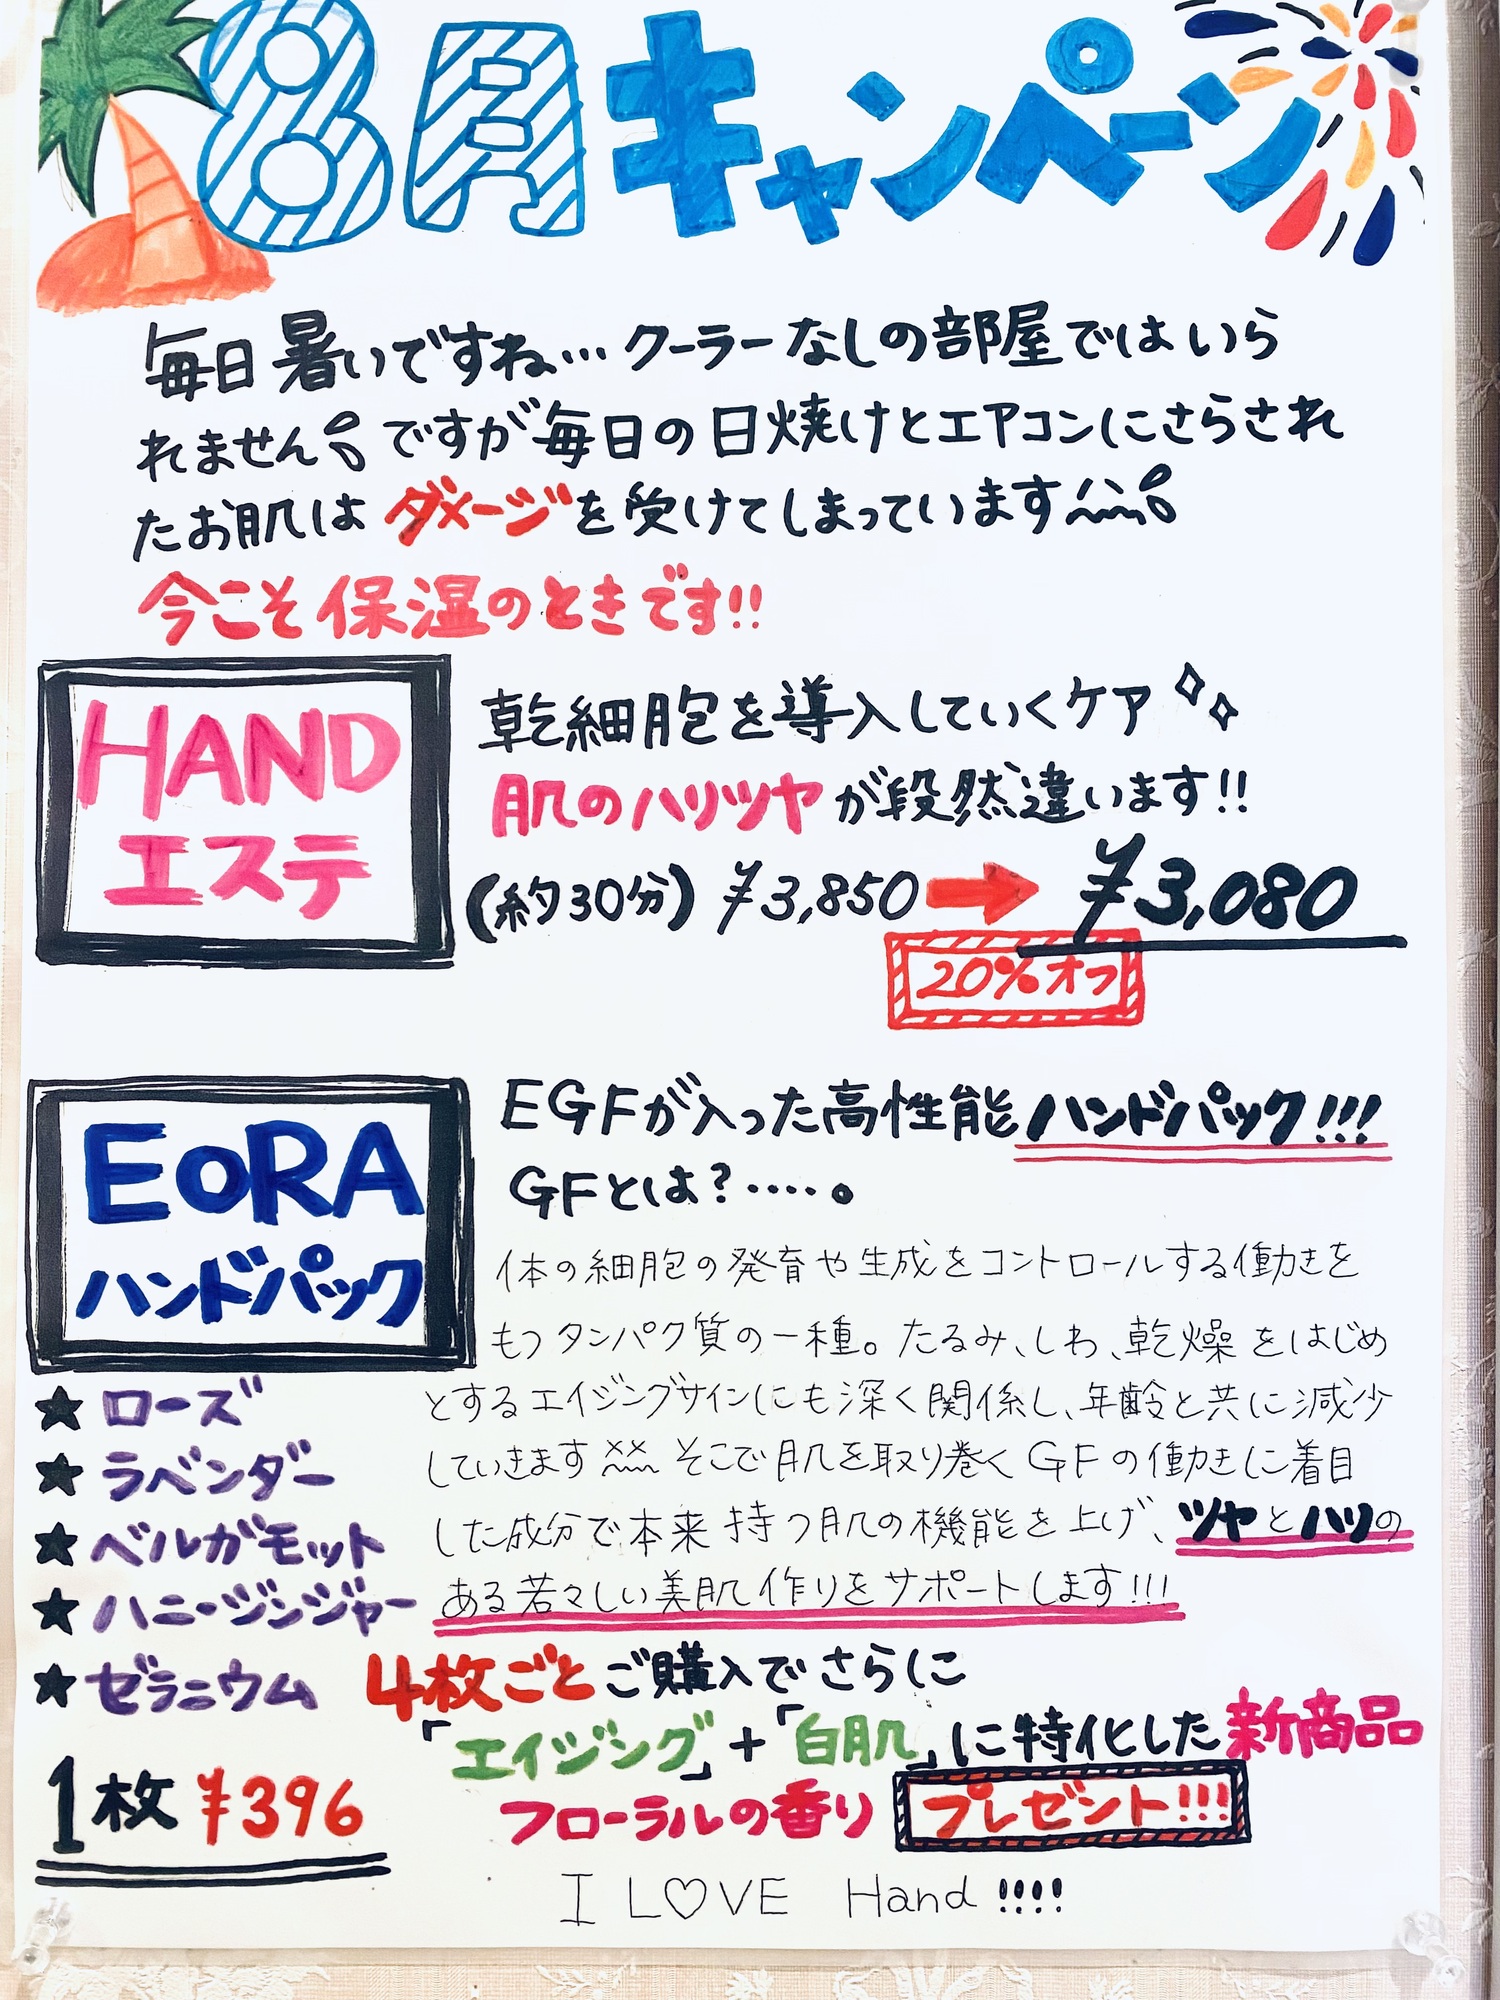 8月キャンペーン
毎日暑いですね…クーラーなしの部屋ではいら
れません ですが毎日の日焼けとエアコンにさらされ
たお肌はダメージを受けてしまっています
今こそ保湿のときです!!
HAND
エステ
乾細胞を導入していくケア
肌のハリツヤが段然違います!!
(約30分) ¥3,850 → ¥3,080
20%オフ
EoRA
ハンドパック
EGFが入った高性能ハンドパック!!!
GFとは?・・・・。
体の細胞の発育や生成をコントロールする働きを
もつタンパク質の一種。たるみ、しわ、乾燥をはじめ
とするエイジングサインにも深く関係し、年齢と共に減少
していきます そこで肌を取り巻くGFの働きに着目
した成分で本来持つ肌の機能を上げ、ツヤとハリの
ある若々しい美肌作りをサポートします!!!
★ローズ
★ラベンダー
★ベルガモット
★ハニージンジャー
★ゼラニウム
1枚 ¥396
4枚ごとご購入でさらに
「エイジング」+「白肌」に特化した新商品
フローラルの香り プレゼント!!!
I L♡VE Hand !!!!